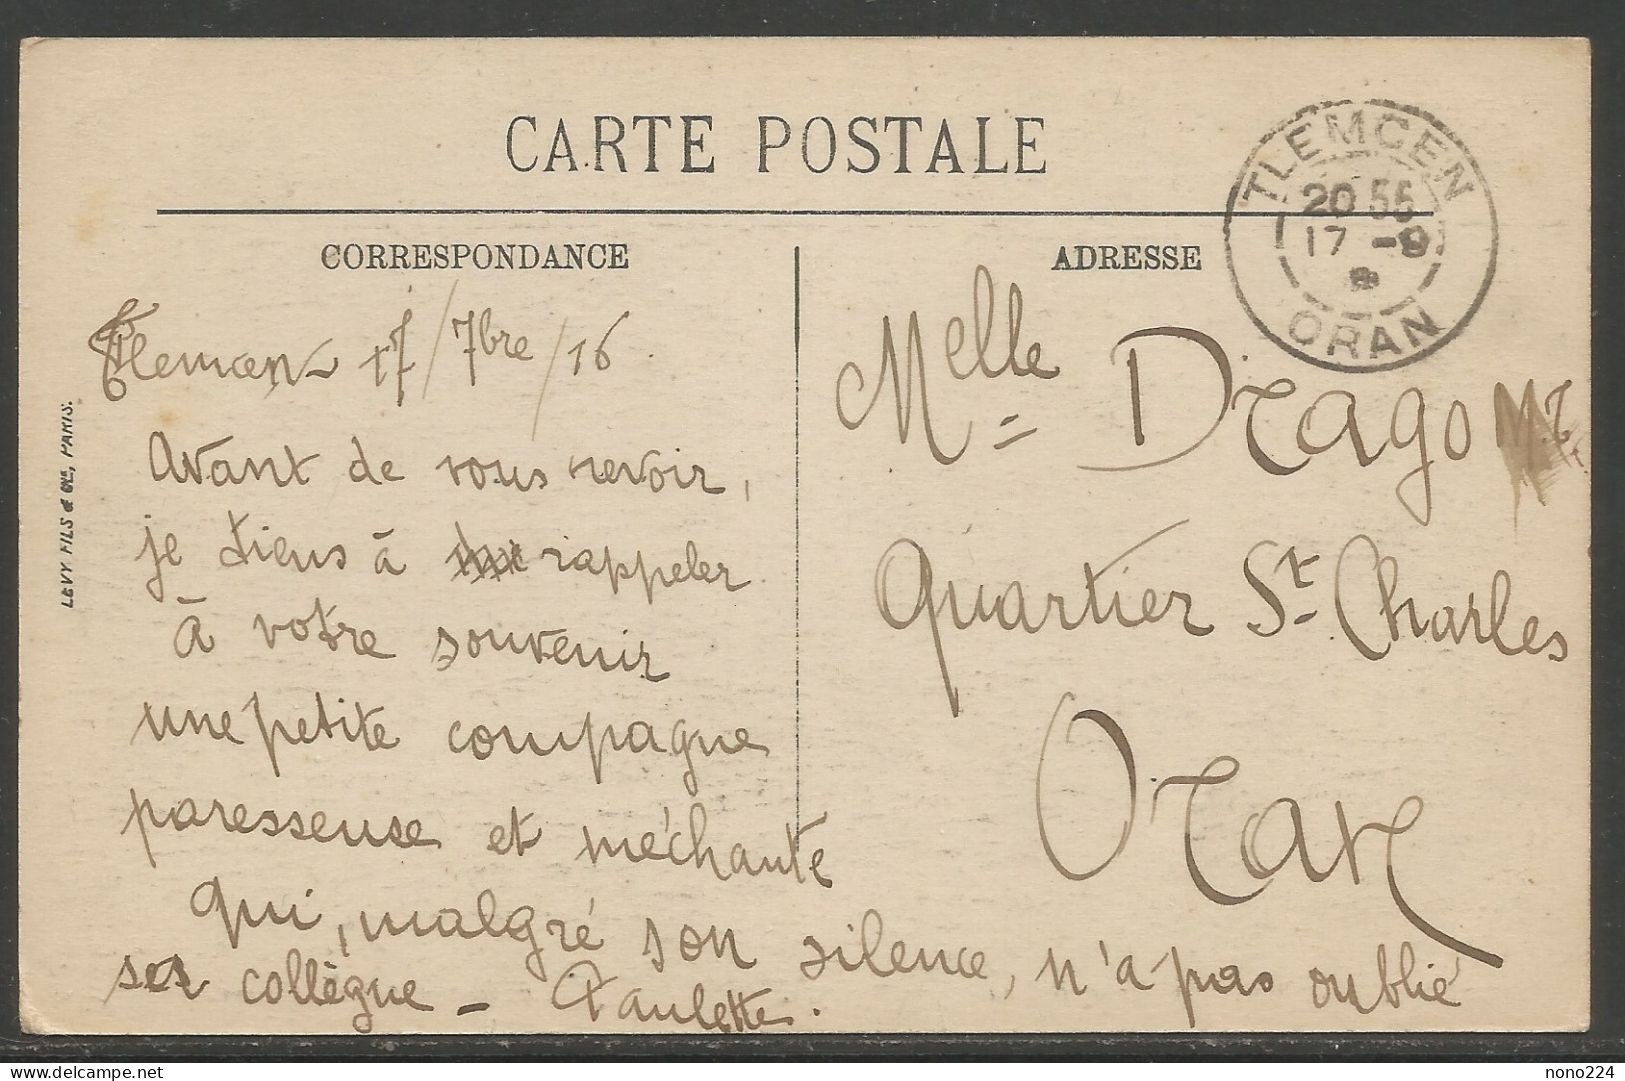 CARTE POSTALE
CORRESPONDANCE
ADRESSE
TLEMCEN
20 55
17 -9
ORAN
Tlemcen 17/7bre/16.
Avant de vous revoir,
je tiens à rappeler
à votre souvenir
une petite compagne
paresseuse et méchante
qui, malgré son silence, n'a pas oublié
ses collègue - Paulette.
Melle Drago
Quartier St. Charles
Oran
LEVY FILS & Cie, PARIS.
nono224